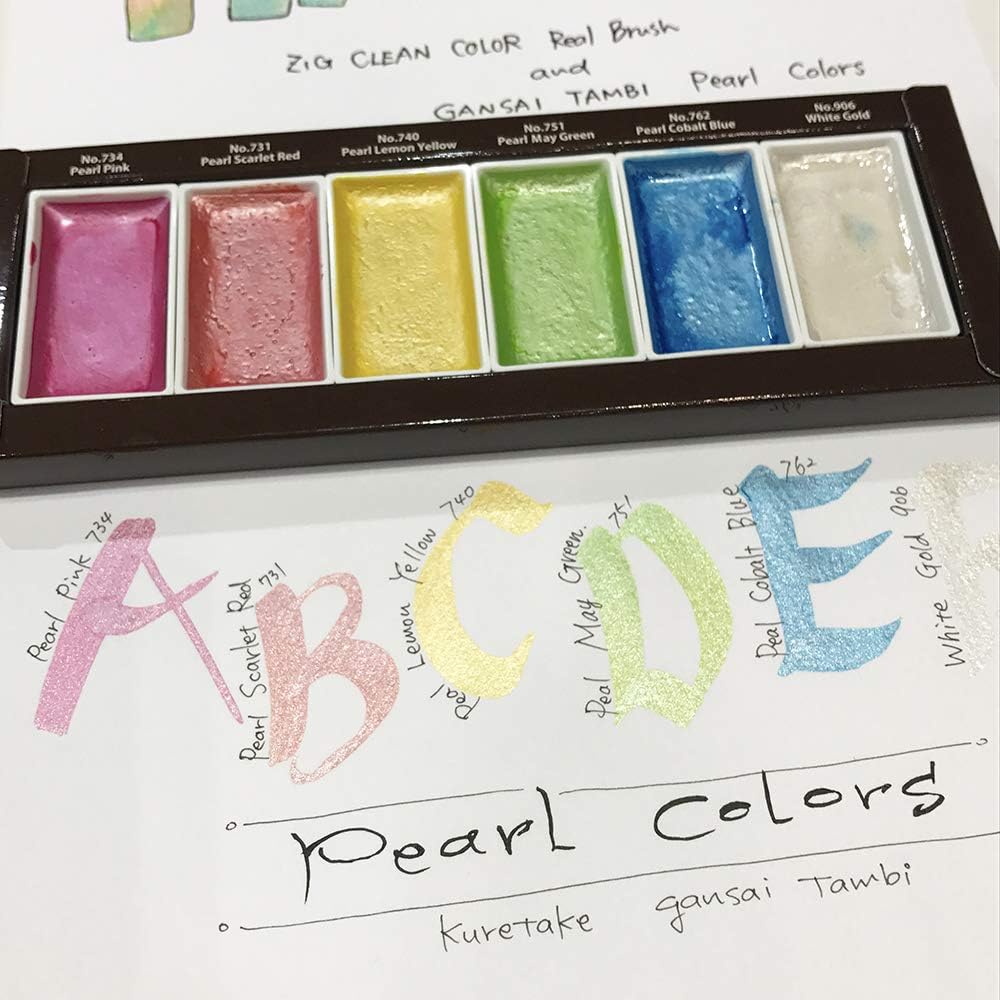 ZIG CLEAN COLOR Real Brush
and
GANSAI TAMBI Pearl Colors
No.734
Pearl Pink
No.731
Pearl Scarlet Red
No.740
Pearl Lemon Yellow
No.751
Pearl May Green
No.762
Pearl Cobalt Blue
No.906
White Gold
Pearl Pink 734
A
Pearl Scarlet Red 731
B
Peal Lemon Yellow 740
C
Peal May Green. 751
D
Peal Cobalt Blue 762
E
White Gold 906
F
Pearl Colors
Kuretake gansai Tambi